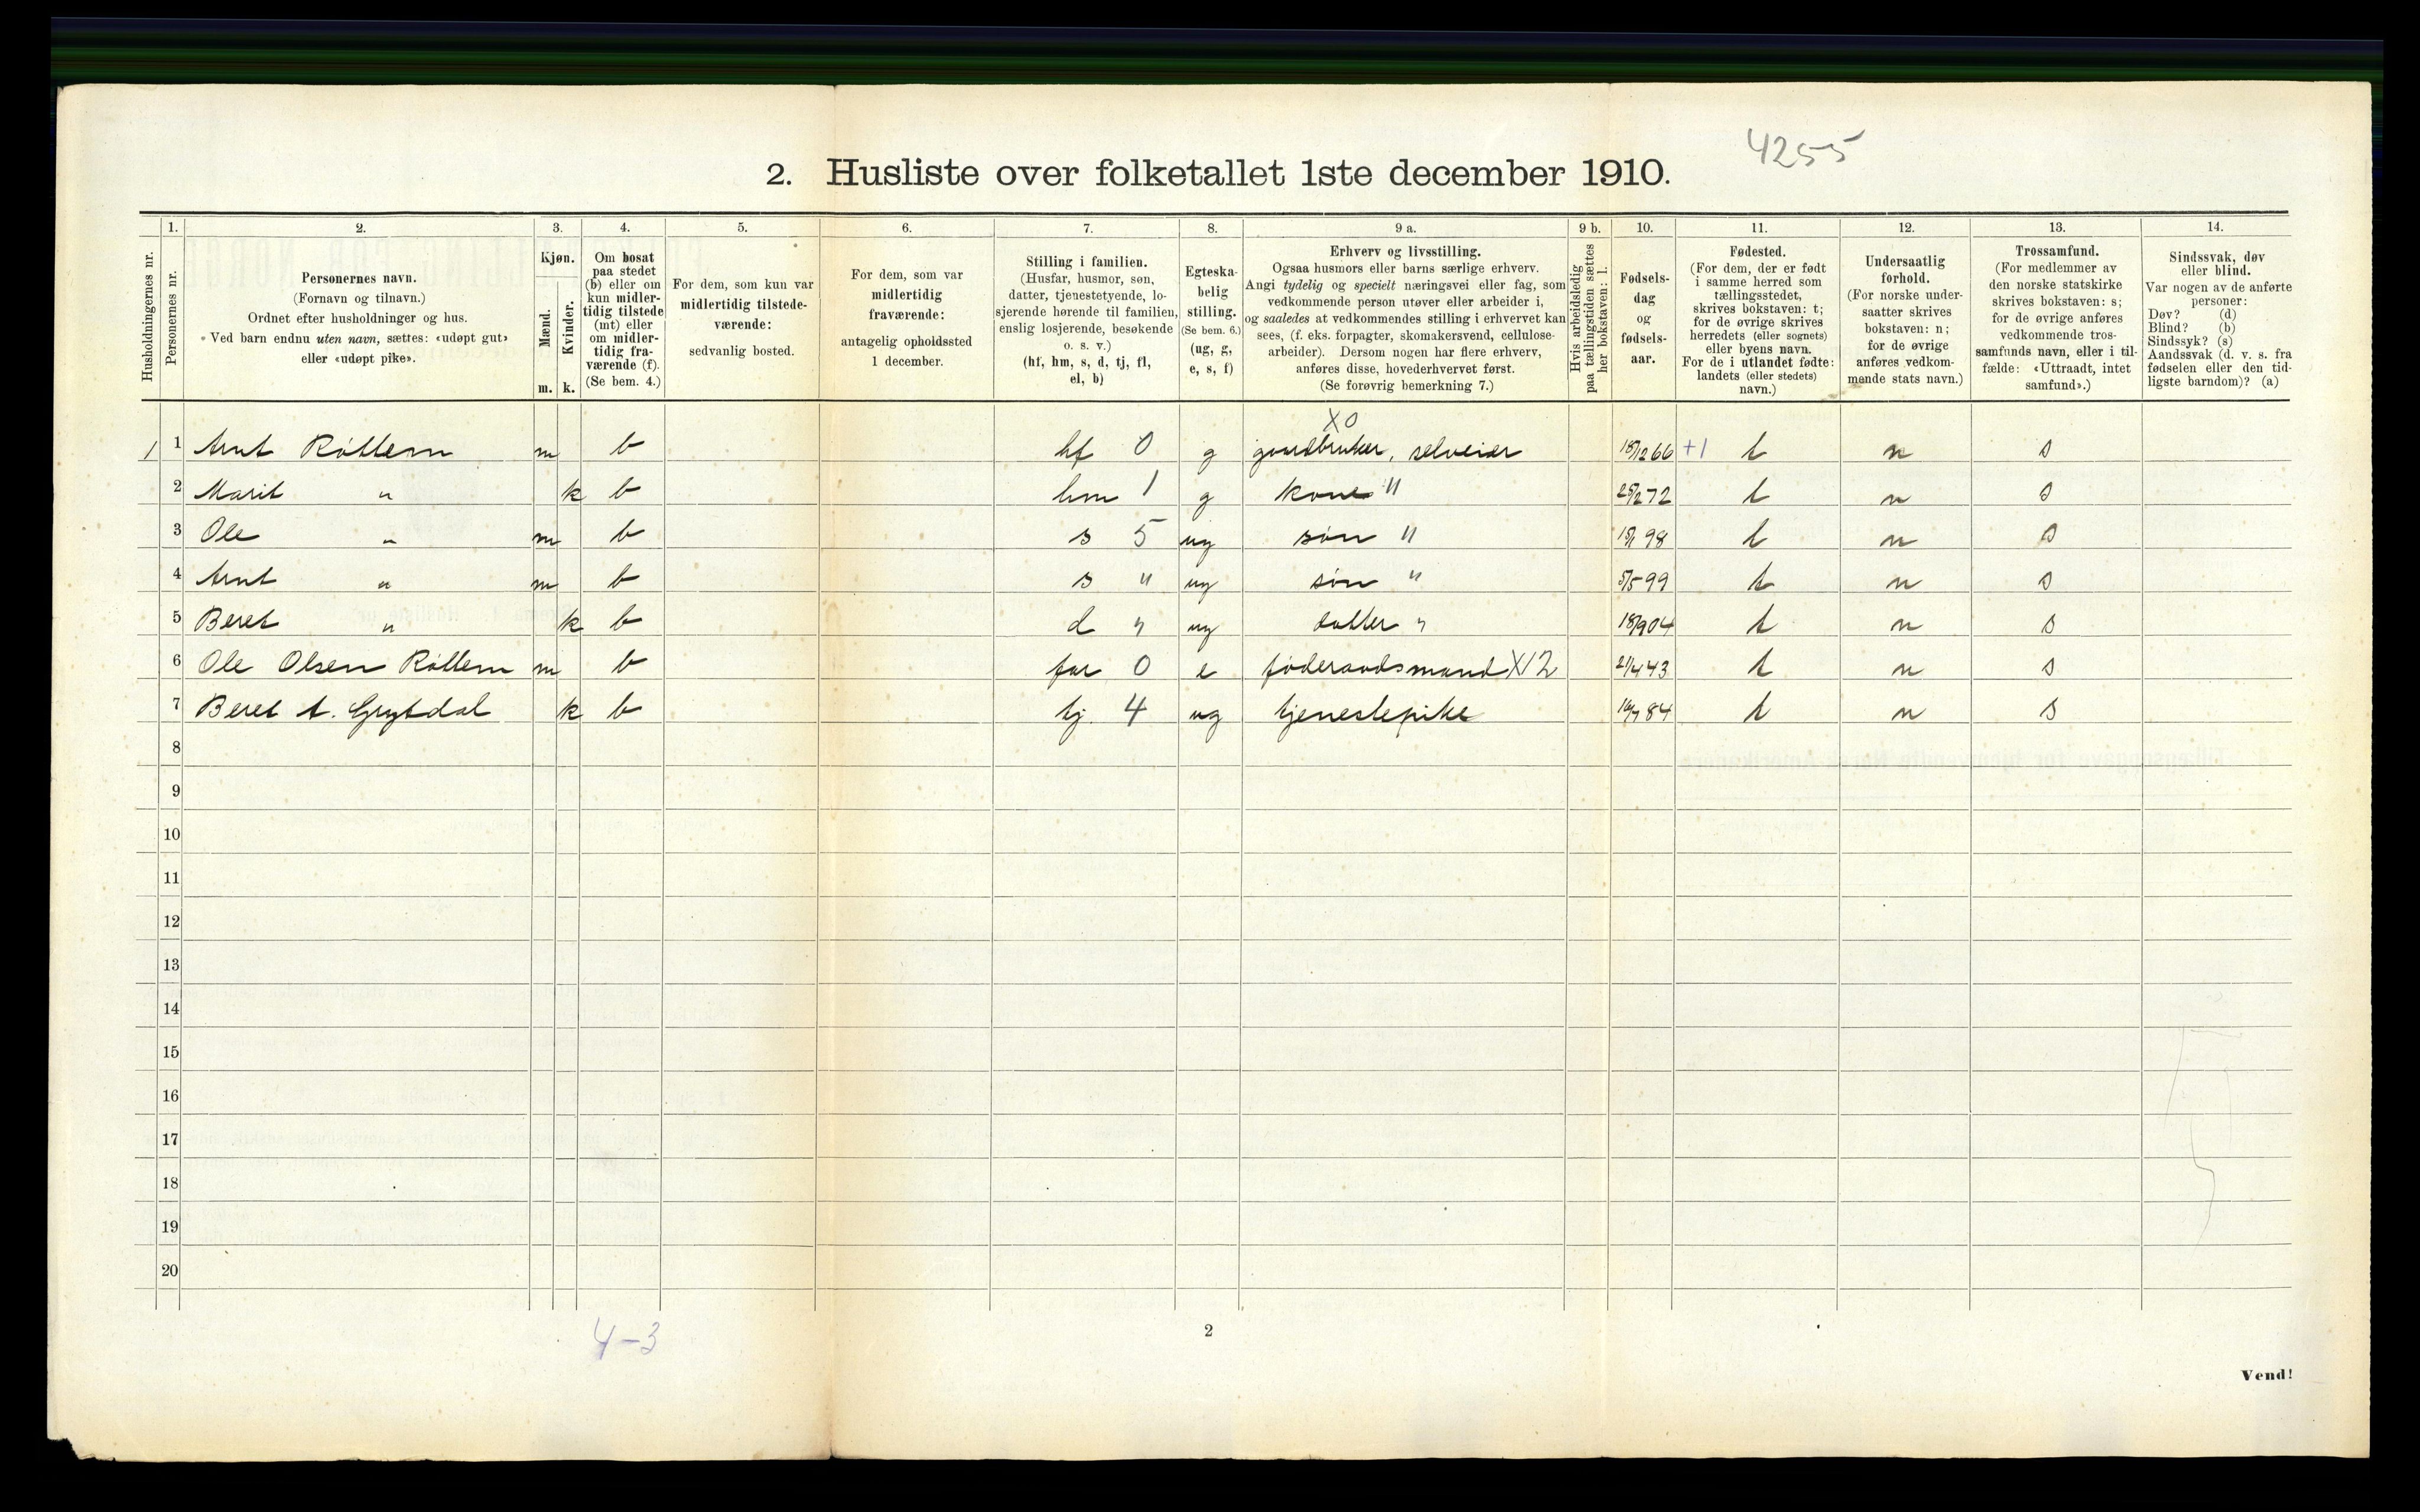 4255
2. Husliste over folketallet 1ste december 1910.
Husholdningernes nr.
1.
Personernes nr.
2.
Personernes navn.
(Fornavn og tilnavn.)
Ordnet efter husholdninger og hus.
Ved barn endnu uten navn, sættes: «udøpt gut»
eller «udøpt pike».
3.
Kjøn.
Mænd.
m.
Kvinder.
k.
4.
Om bosat
paa stedet
(b) eller om
kun midler-
tidig tilstede
(mt) eller
om midler-
tidig fra-
værende (f).
(Se bem. 4.)
5.
For dem, som kun var
midlertidig tilstede-
værende:
sedvanlig bosted.
6.
For dem, som var
midlertidig
fraværende:
antagelig opholdssted
1 december.
7.
Stilling i familien.
(Husfar, husmor, søn,
datter, tjenestetyende, lo-
sjerende hørende til familien,
enslig losjerende, besøkende
o. s. v.)
(hf, hm, s, d, tj, fl,
el, b)
8.
Egteska-
belig
stilling.
(Se bem. 6.)
(ug, g,
e, s, f)
9 a.
Erhverv og livsstilling.
Ogsaa husmors eller barns særlige erhverv.
Angi tydelig og specielt næringsvei eller fag, som
vedkommende person utøver eller arbeider i,
og saaledes at vedkommendes stilling i erhvervet kan
sees, (f. eks. forpagter, skomakersvend, cellulose-
arbeider). Dersom nogen har flere erhverv,
anføres disse, hovederhvervet først.
(Se forøvrig bemerkning 7.)
9 b.
Hvis arbeidsledig
paa tællingstiden sættes
her bokstaven: l.
10.
Fødsels-
dag
og
fødsels-
aar.
11.
Fødested.
(For dem, der er født
i samme herred som
tællingsstedet,
skrives bokstaven: t;
for de øvrige skrives
herredets (eller sognets)
eller byens navn.
For de i utlandet fødte:
landets (eller stedets)
navn.)
12.
Undersaatlig
forhold.
(For norske under-
saatter skrives
bokstaven: n;
for de øvrige
anføres vedkom-
mende stats navn.)
13.
Trossamfund.
(For medlemmer av
den norske statskirke
skrives bokstaven: s;
for de øvrige anføres
vedkommende tros-
samfunds navn, eller i til-
fælde: «Uttraadt, intet
samfund».)
14.
Sindssvak, døv
eller blind.
Var nogen av de anførte
personer:
Døv? (d)
Blind? (b)
Sindssyk? (s)
Aandssvak (d. v. s. fra
fødselen eller den tid-
ligste barndom)? (a)
X0
1 1 Arnt Röttem m b hf 0 g gaardbruker, selveier 18/12 66 +1 t n s
2 Marit " k b hm 1 g kone " 25/2 72 t n s
3 Ole " m b s 5 ug søn " 98 t n s
4 Arnt " m b s " ug søn " 5/5 99 t n s
5 Beret " k b d " ug datter " 18/9 04 t n s
6 Ole Olsen Röttem m b far 0 e föderaadsmand X12 21/4 43 t n s
7 Beret A. Grytdal k b tj 4 ug tjenestepike 84 t n s
8
9
10
11
12
13
14
15
16
17
18
19
20
4-3
2
Vend!